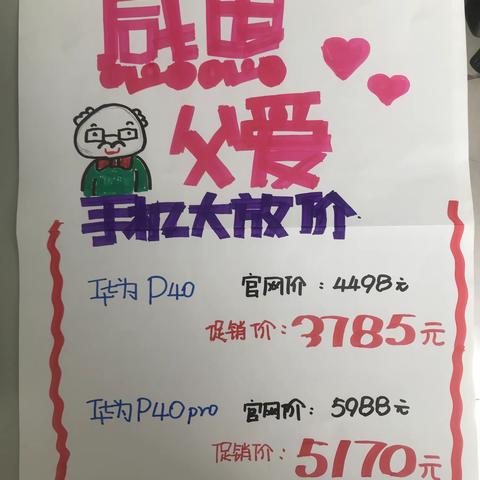 感恩
父爱
手机大放价
华为P40 官网价:4498元
促销价:3785元
华为P40pro 官网价:5988元
促销价:5170元